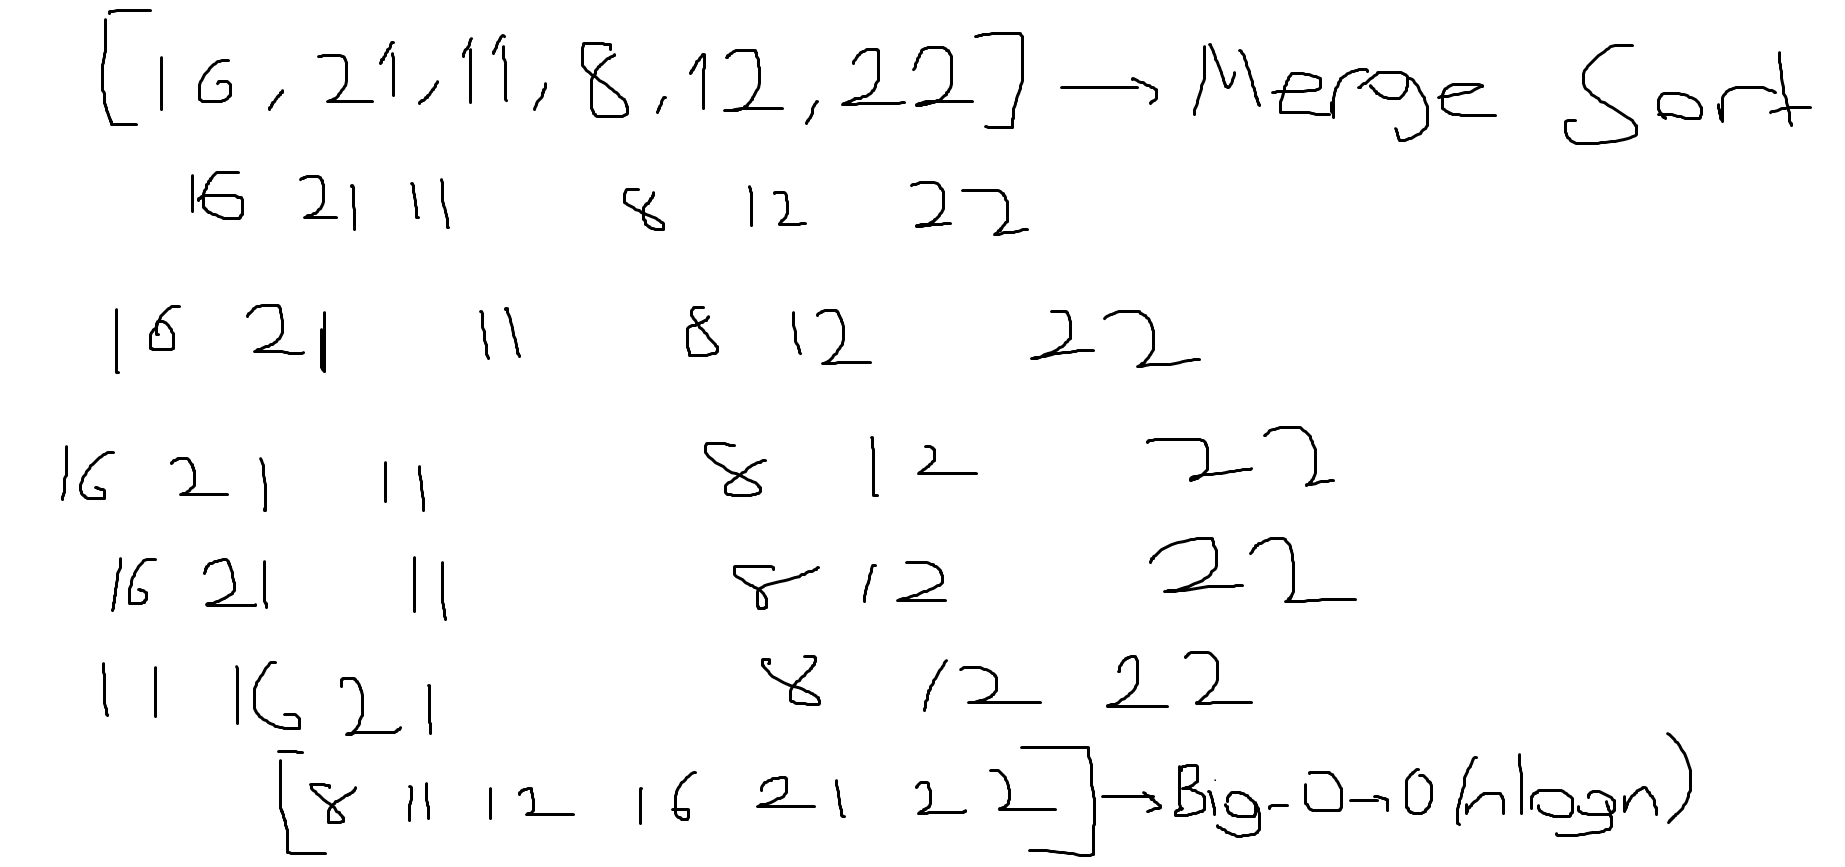 [16, 21, 11, 8, 12, 22] → Merge Sort
16 21 11 8 12 22
16 21 11 8 12 22
16 21 11 8 12 22
16 21 11 8 12 22
11 16 21 8 12 22
[8 11 12 16 21 22] → Big-O → O(nlogn)